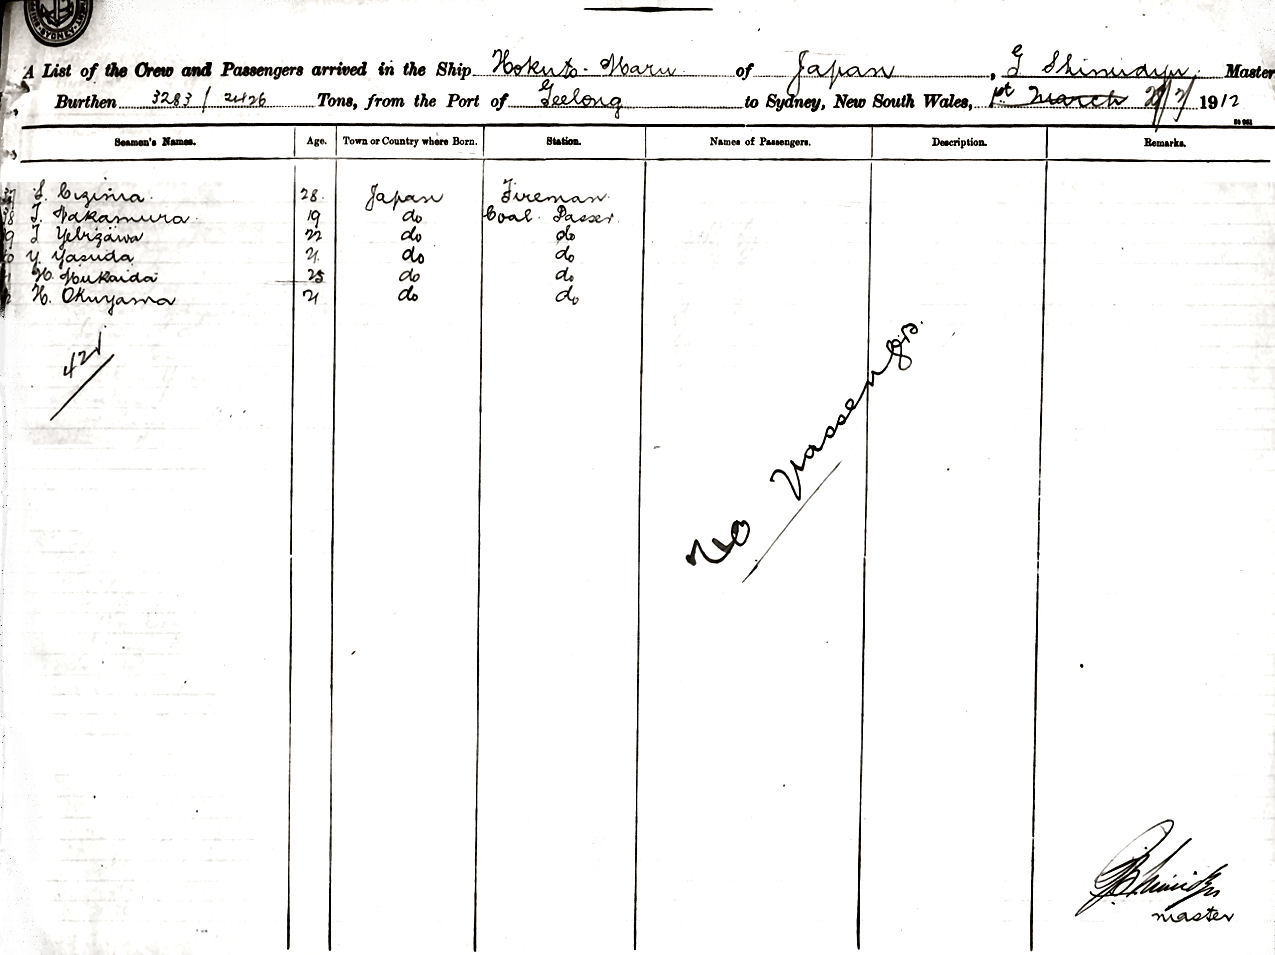 A List of the Crew and Passengers arrived in the Ship Hokuto Maru of Japan, G Shimidzu, Master
Burthen 3283 / 2426 Tons, from the Port of Geelong to Sydney, New South Wales, 1st March 29/2/ 1912
Seamen's Names. Age. Town or Country where Born. Station. Names of Passengers. Description. Remarks.
28 Japan Fireman
38 T. Nakamura 19 do Coal Passer
T Yebizawa 22 do do
Y Yasuda 21 do do
H. Mukaida 25 do do
H. Okuyama 21 do do
42
No Passengrs.
G Shimidzu
master